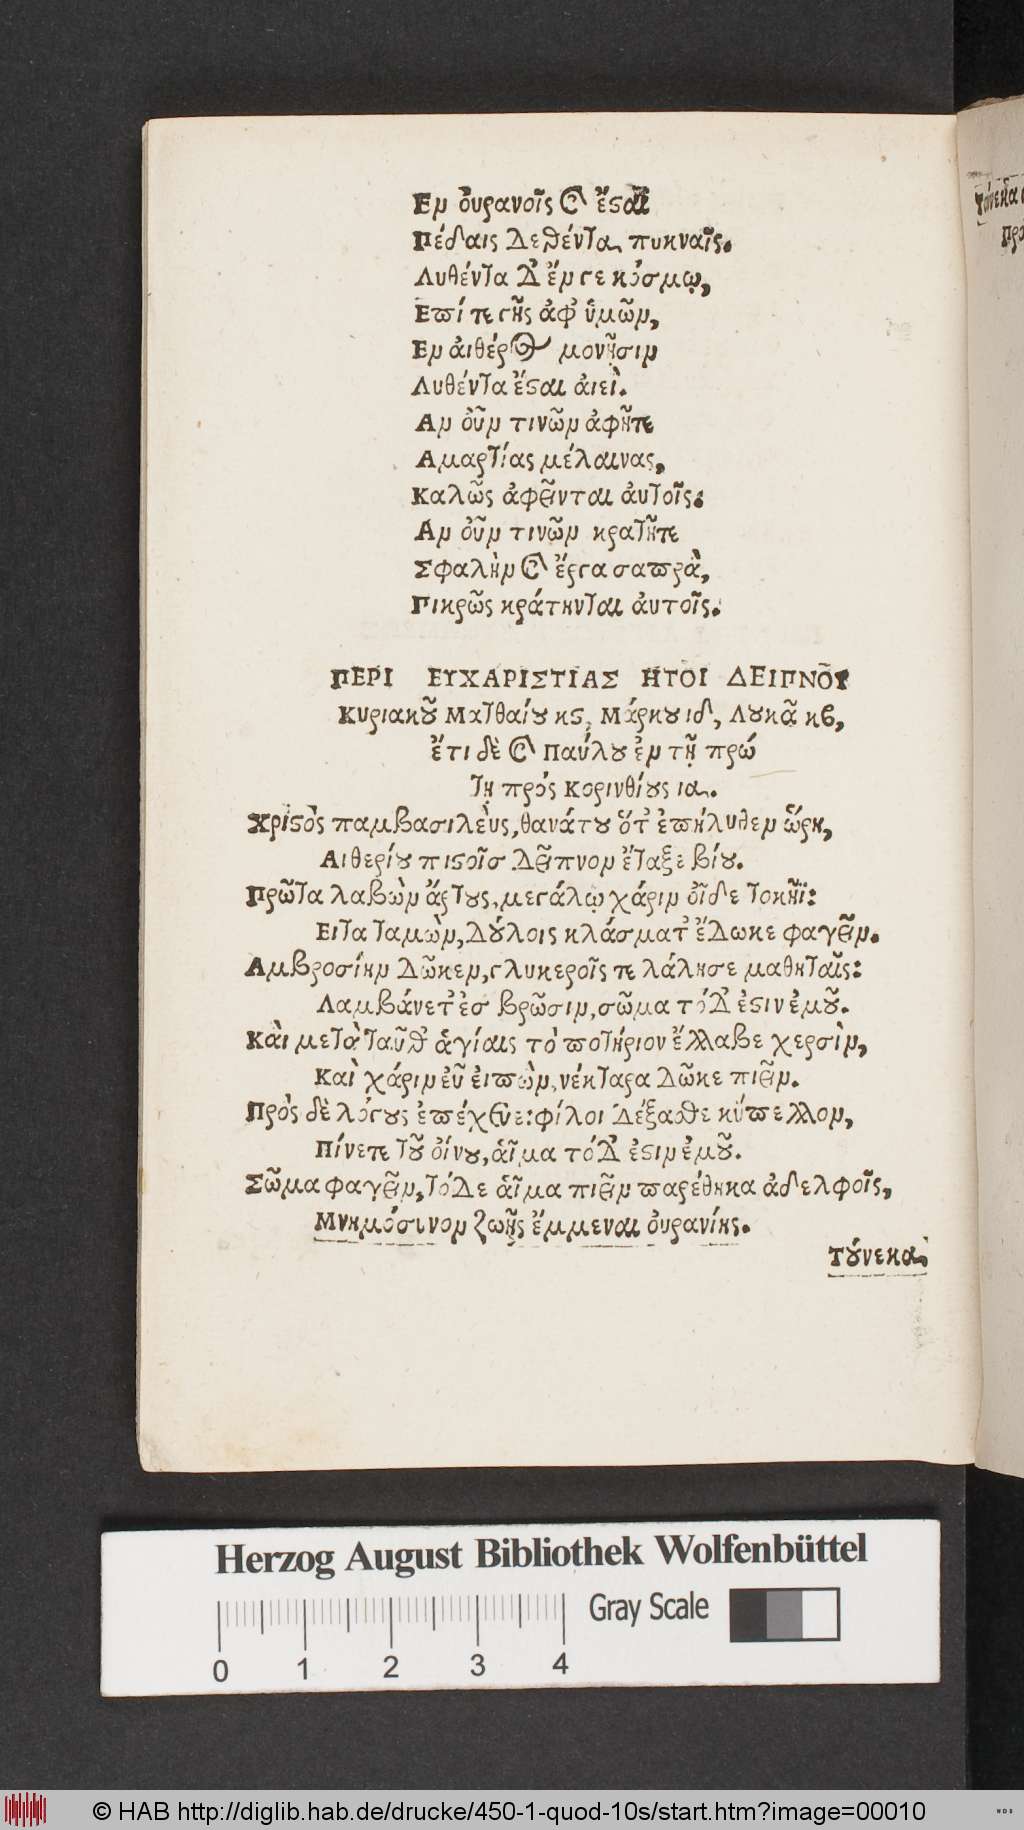 Εν ὀυρανοῖς ϗ ἔϛαι
Πέδαις Δεθέντα πυκναῖς.
Λυθέντα Δ᾽ ἔν γε κόσμῳ,
Επίτε γῆς ἀφ᾽ ὑμῶν,
Εν ἀιθέρος μονῇσιν
Λυθέντα ἔϛαι ἀιεὶ.
Αν ὀῦν τινῶν ἀφῆτε
Αμαρτίας μέλαινας,
Καλῶς ἀφεῖνται ἀυτοῖς.
Αν ὀῦν τινῶν κρατῆτε
Σφαλὴν ϗ ἔργα σαπρὰ,
Πικρῶς κράτηνται ἀυτοῖς.
ΠΕΡΙ ΕΥΧΑΡΙΣΤΙΑΣ ΗΤΟΙ ΔΕΙΠΝΟΥ
Κυριακοῦ Ματθαίου κϛ, Μάρκου ιδ, Λουκᾶ κβ,
ἔτι δὲ ϗ Παύλου ἐν τῇ πρώ
τῃ πρός Κορινθίους ια.
Χριϛὸς παμβασιλεὺς, θανάτου ὅτ᾽ ἐπήλυθεν ὥρη,
Αιθερίου πιϛοῖσ Δεῖπνον ἔταξε βίου.
Πρῶτα λαβὼν ἄρτους, μεγάλῳ χάριν ὀῖδε τοκῆϊ:
Ειτα ταμὼν, Δούλοις κλάσματ᾽ ἔΔωκε φαγεῖν.
Αμβροσίην Δῶκεν, γλυκεροῖς τε λάλησε μαθηταῖς:
Λαμβάνετ᾽ ἐσ βρῶσιν, σῶμα τόΔ᾽ ἐϛιν ἐμοῦ.
Καὶ μετὰ ταῦθ᾽ ἁγίαις τὸ ποτήριον ἔλλαβε χερσὶν,
Καὶ χάριν ἐῦ ἐιπὼν, νέκταρα Δῶκε πιεῖν.
Πρὸς δὲ λόγους ἐπέχευε: φίλοι Δέξασθε κύπελλον,
Πίνετε τοῦ ὀίνου, ἁῖμα τόΔ᾽ ἐϛιν ἐμοῦ.
Σῶμα φαγεῖν, τόΔε ἁῖμα πιεῖν παρέθηκα ἀδελφοῖς,
Μνημόσινον ζωῆς ἔμμεναι ὀυρανίης.
Τούνεκα
Herzog August Bibliothek Wolfenbüttel
Gray Scale
0 1 2 3 4
© HAB http://diglib.hab.de/drucke/450-1-quod-10s/start.htm?image=00010